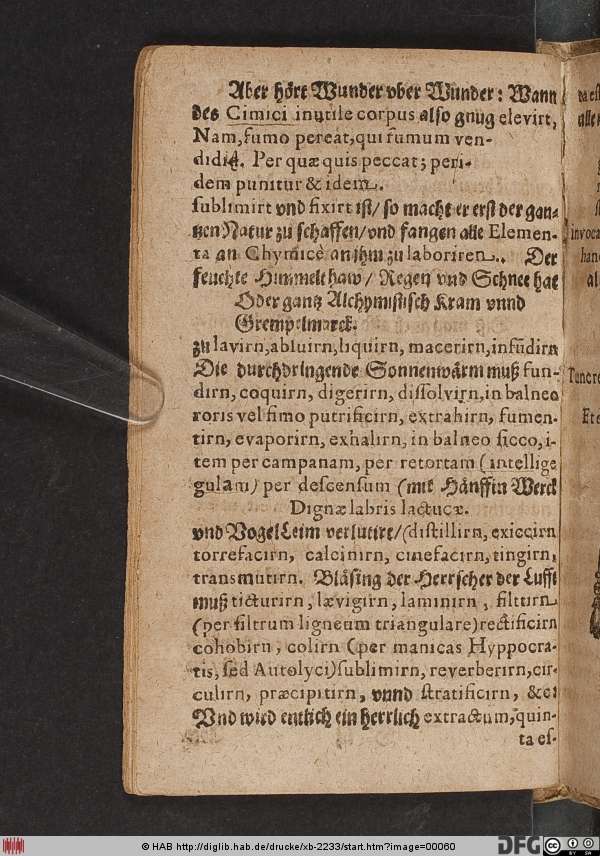 Aber hört Wunder vber Wunder: Wann
des Cimici inutile corpus also gnug elevirt,
Nam, fumo pereat, qui fumum ven-
didit. Per quæ quis peccat; peri-
dem punitur & idem.
sublimirt vnd fixirt ist/ so macht er erst der gan-
tzen Natur zu schaffen/ vnd fangen alle Elemen-
ta an Chymicè an jhm zu laboriren. Der
feuchte Himmelthaw/ Regen vnd Schnee hat
Oder gantz Alchymistisch Kram vnnd
Grempelmarck.
zu lavirn, abluirn, liquirn, macerirn, infūdirn
Die durchdringende Sonnenwärm muß fun-
dirn, coquirn, digerirn, dissolvirn, in balneo
roris vel fimo putrificirn, extrahirn, fumen-
tirn, evaporirn, exhalirn, in balneo sicco, i-
tem per campanam, per retortam (intellige
gulam) per descensum (mit Hänffin Werck
Dignæ labris lactucæ.
vnd Vogel Leim verlutirt/ (distillirn, exiccirn
torrefacirn, calcinirn, cinefacirn, tingirn,
transmutirn. Bläsing der Herrscher der Lufft
muß ticturirn, lævigirn, laminirn, filtirn
(per filtrum ligneum triangulare) rectificirn
cohobirn, colirn (per manicas Hyppocra-
tis, sed Autolyci) sublimirn, reverberirn, cir-
culirn, præcipitirn, vnnd stratificirn, &c:
Vnd wird entlich ein herrlich extractum, quin-
ta es-
invoca
Tancre
Ete
© HAB http://diglib.hab.de/drucke/xb-2233/start.htm?image=00060
DFG
CC BY SA